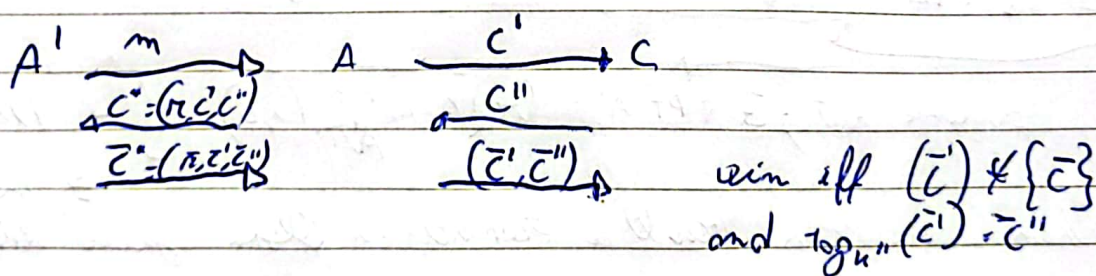 A' m A c' C
c* = (r, c', c'') c''
c̄* = (r̄, c̄', c̄'') (c̄', c̄'') win iff (c̄') ∉ {c̄}
and log_k'' (c̄') = c̄''